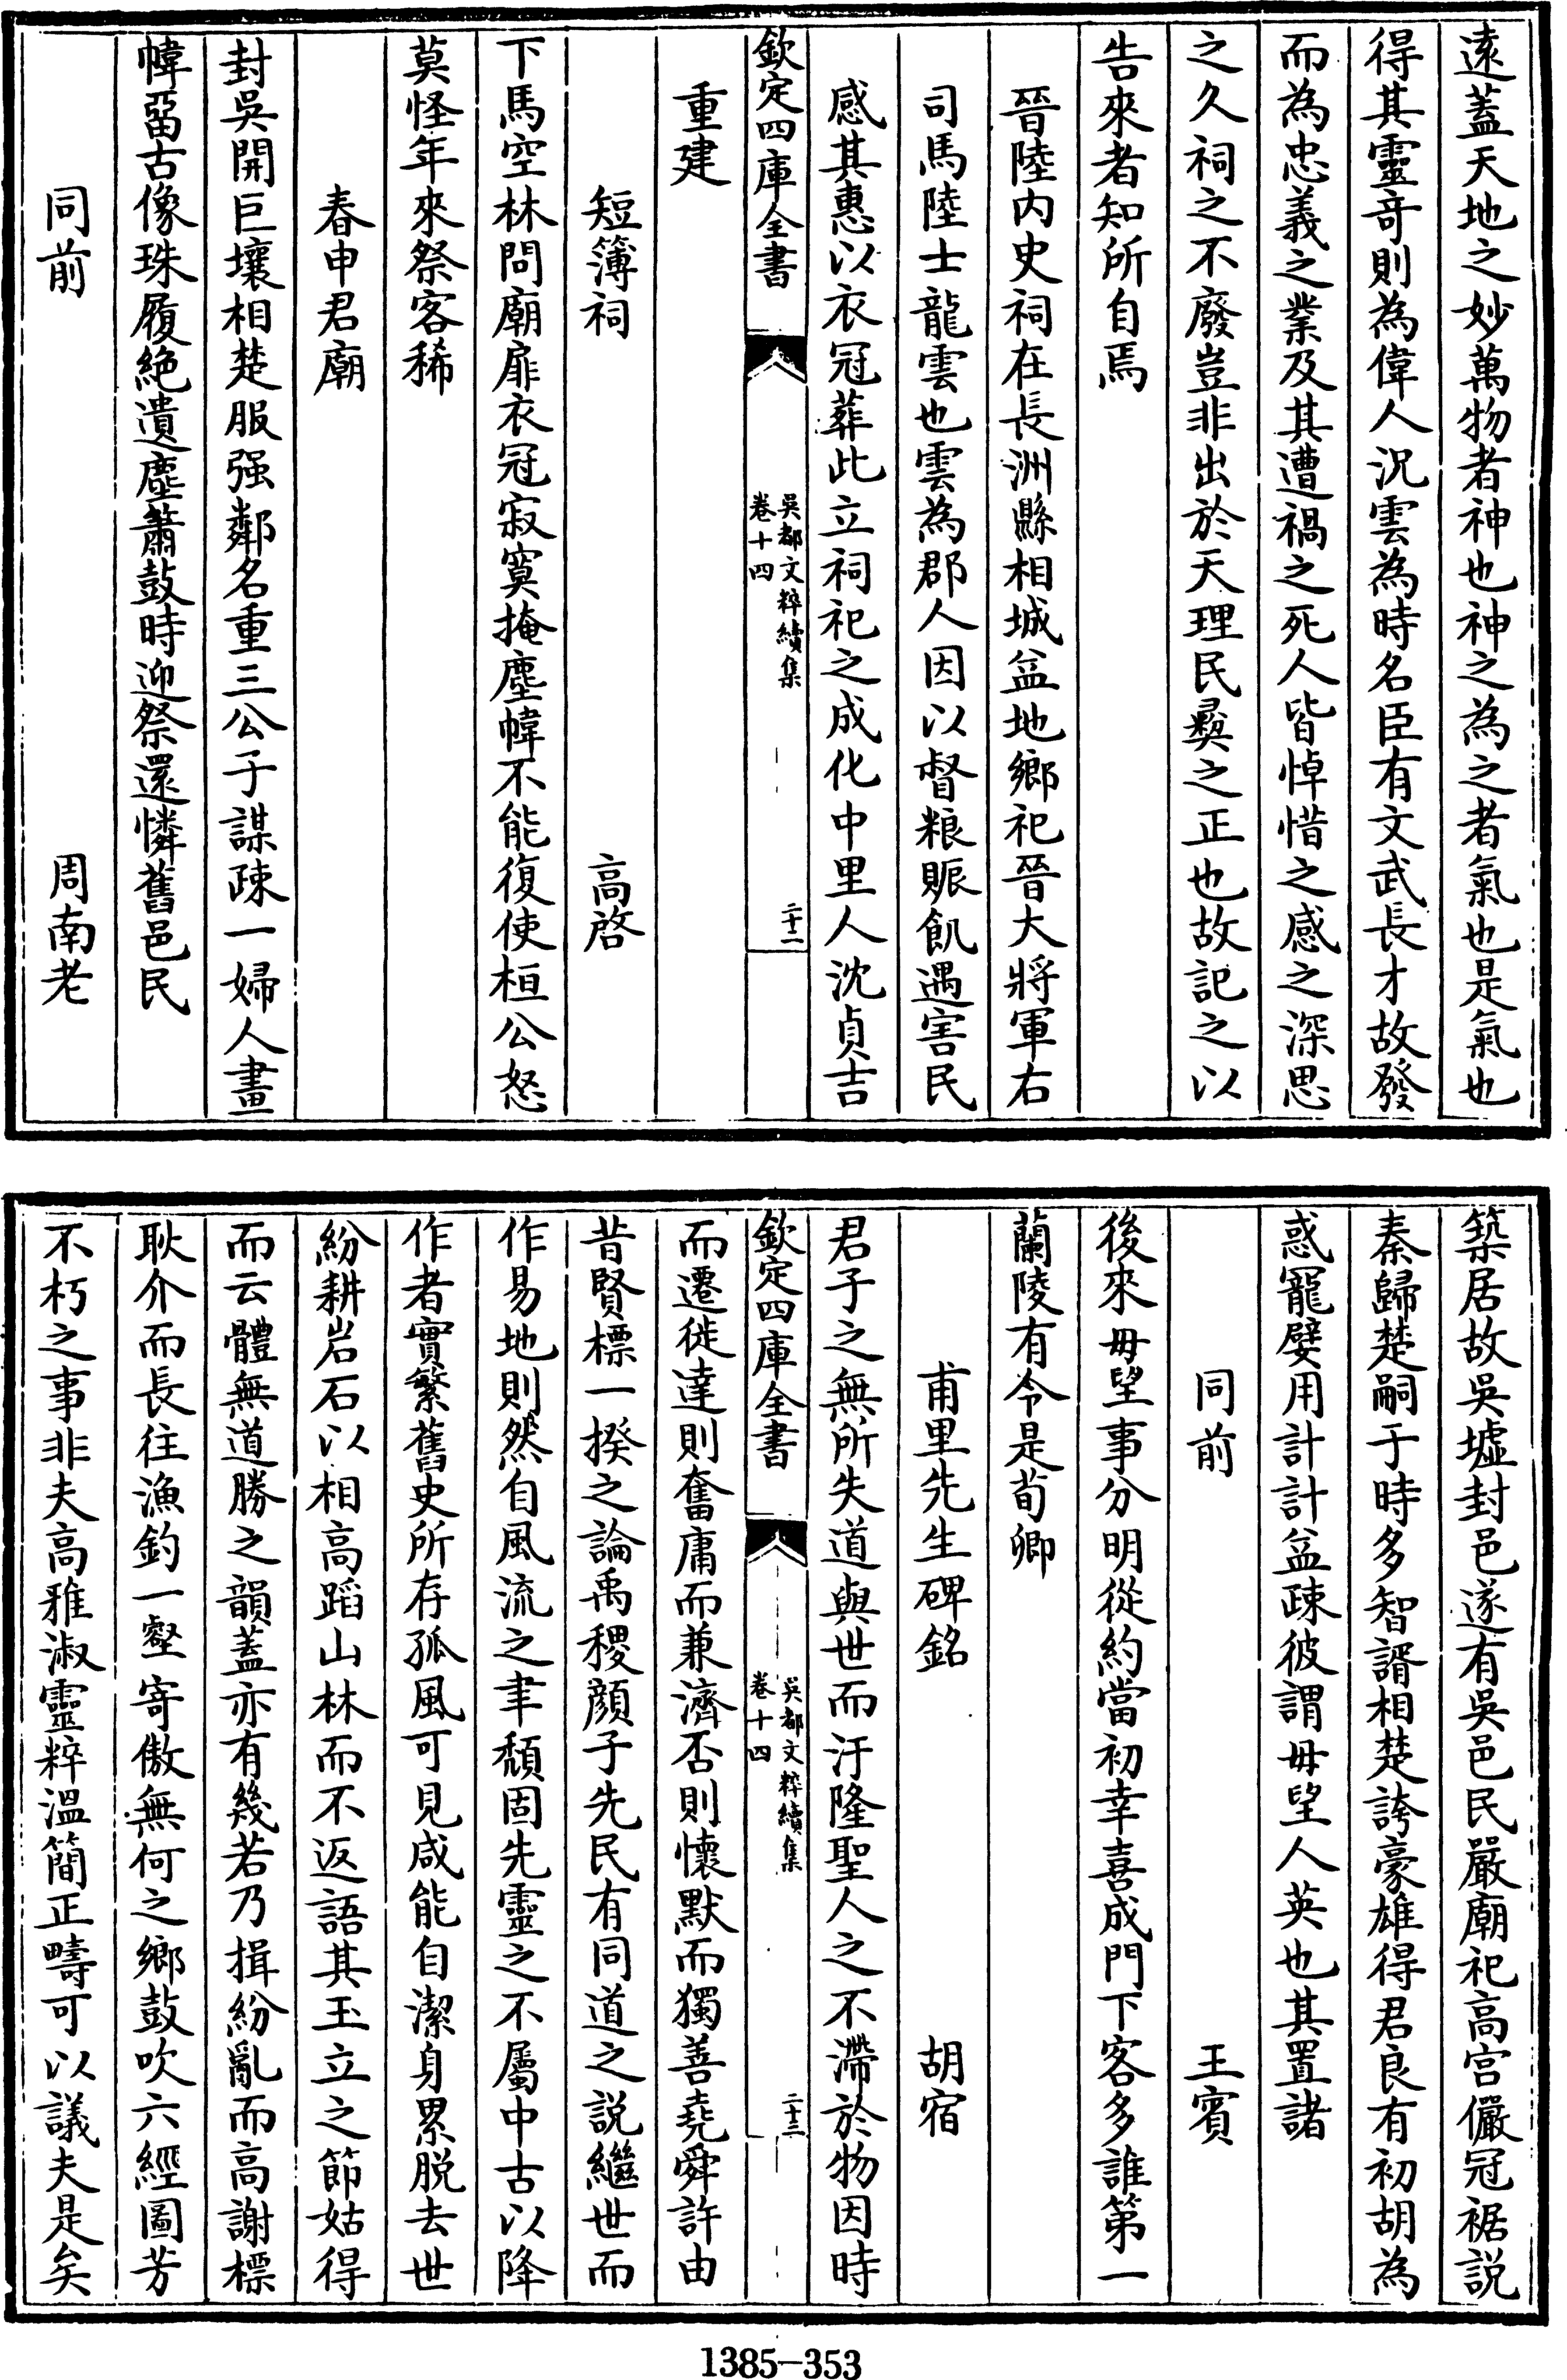 逺蓋天地之妙萬物者神也神之為之者氣也是氣也
得其靈竒則為偉人況雲為時名臣有文武長才故發
而為忠義之業及其遭禍之死人皆悼惜之感之深思
之久祠之不廢豈非出於天理民彞之正也故記之以
告來者知所自焉
晉陸内史祠在長洲縣相城盆地鄉祀晉大將軍右
司馬陸士龍雲也雲為郡人因以督粮賑飢遇害民
感其惠以衣冠葬此立祠祀之成化中里人沈貞吉
欽定四庫全書
吳都文粹續集
卷十四
二十二
重建
短簿祠 高啓
下馬空林問廟扉衣冠寂寞掩塵幃不能復使桓公怒
莫怪年來祭客稀
春申君廟
封吳開巨壤相楚服强鄰名重三公子謀疎一婦人畫
幃畱古像珠履絶遺塵簫鼓時迎祭還憐舊邑民
同前 周南老
築居故吳墟封邑遂有吳邑民嚴廟祀高宫儼冠裾説
秦歸楚嗣于時多智諝相楚誇豪雄得君良有初胡為
惑寵嬖用計計盆疎彼謂毋望人英也其置諸
同前 王賓
後來毋望事分明從約當初幸喜成門下客多誰第一
蘭陵有令是荀卿
甫里先生碑銘 胡宿
君子之無所失道與世而汙隆聖人之不滯於物因時
欽定四庫全書
吳都文粹續集
卷十四
二十三
而遷徙達則奮庸而兼濟否則懷默而獨善堯舜許由
昔賢標一揆之論禹稷顔子先民有同道之説繼世而
作易地則然自風流之聿頹固先靈之不屬中古以降
作者實繁舊史所存孤風可見咸能自潔身累脱去世
紛耕岩石以相高蹈山林而不返語其玉立之節姑得
而云體無道勝之韻蓋亦有幾若乃揖紛亂而高謝標
耿介而長往漁釣一壑寄傲無何之鄉鼓吹六經圖芳
不朽之事非夫高雅淑靈粹溫簡正疇可以議夫是矣
1385-353